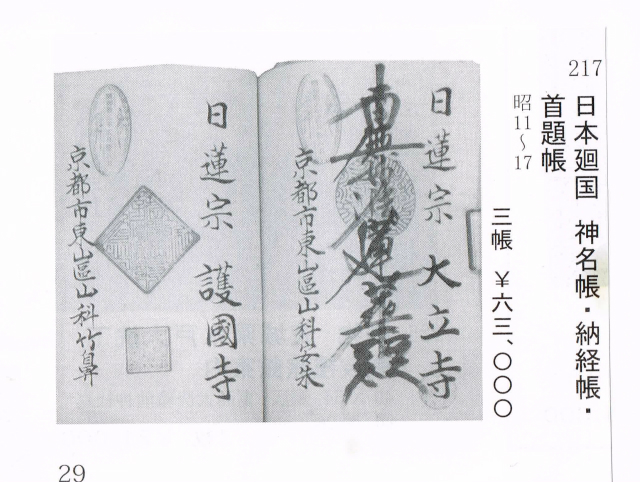 217
日本廻国 神名帳・納経帳・
首題帳
昭11〜17
三帳 ¥六三、〇〇〇
日蓮宗 大立寺
南無妙法蓮華経
京都市東山區山科安朱
日蓮宗 護國寺
京都市東山區山科竹鼻
29